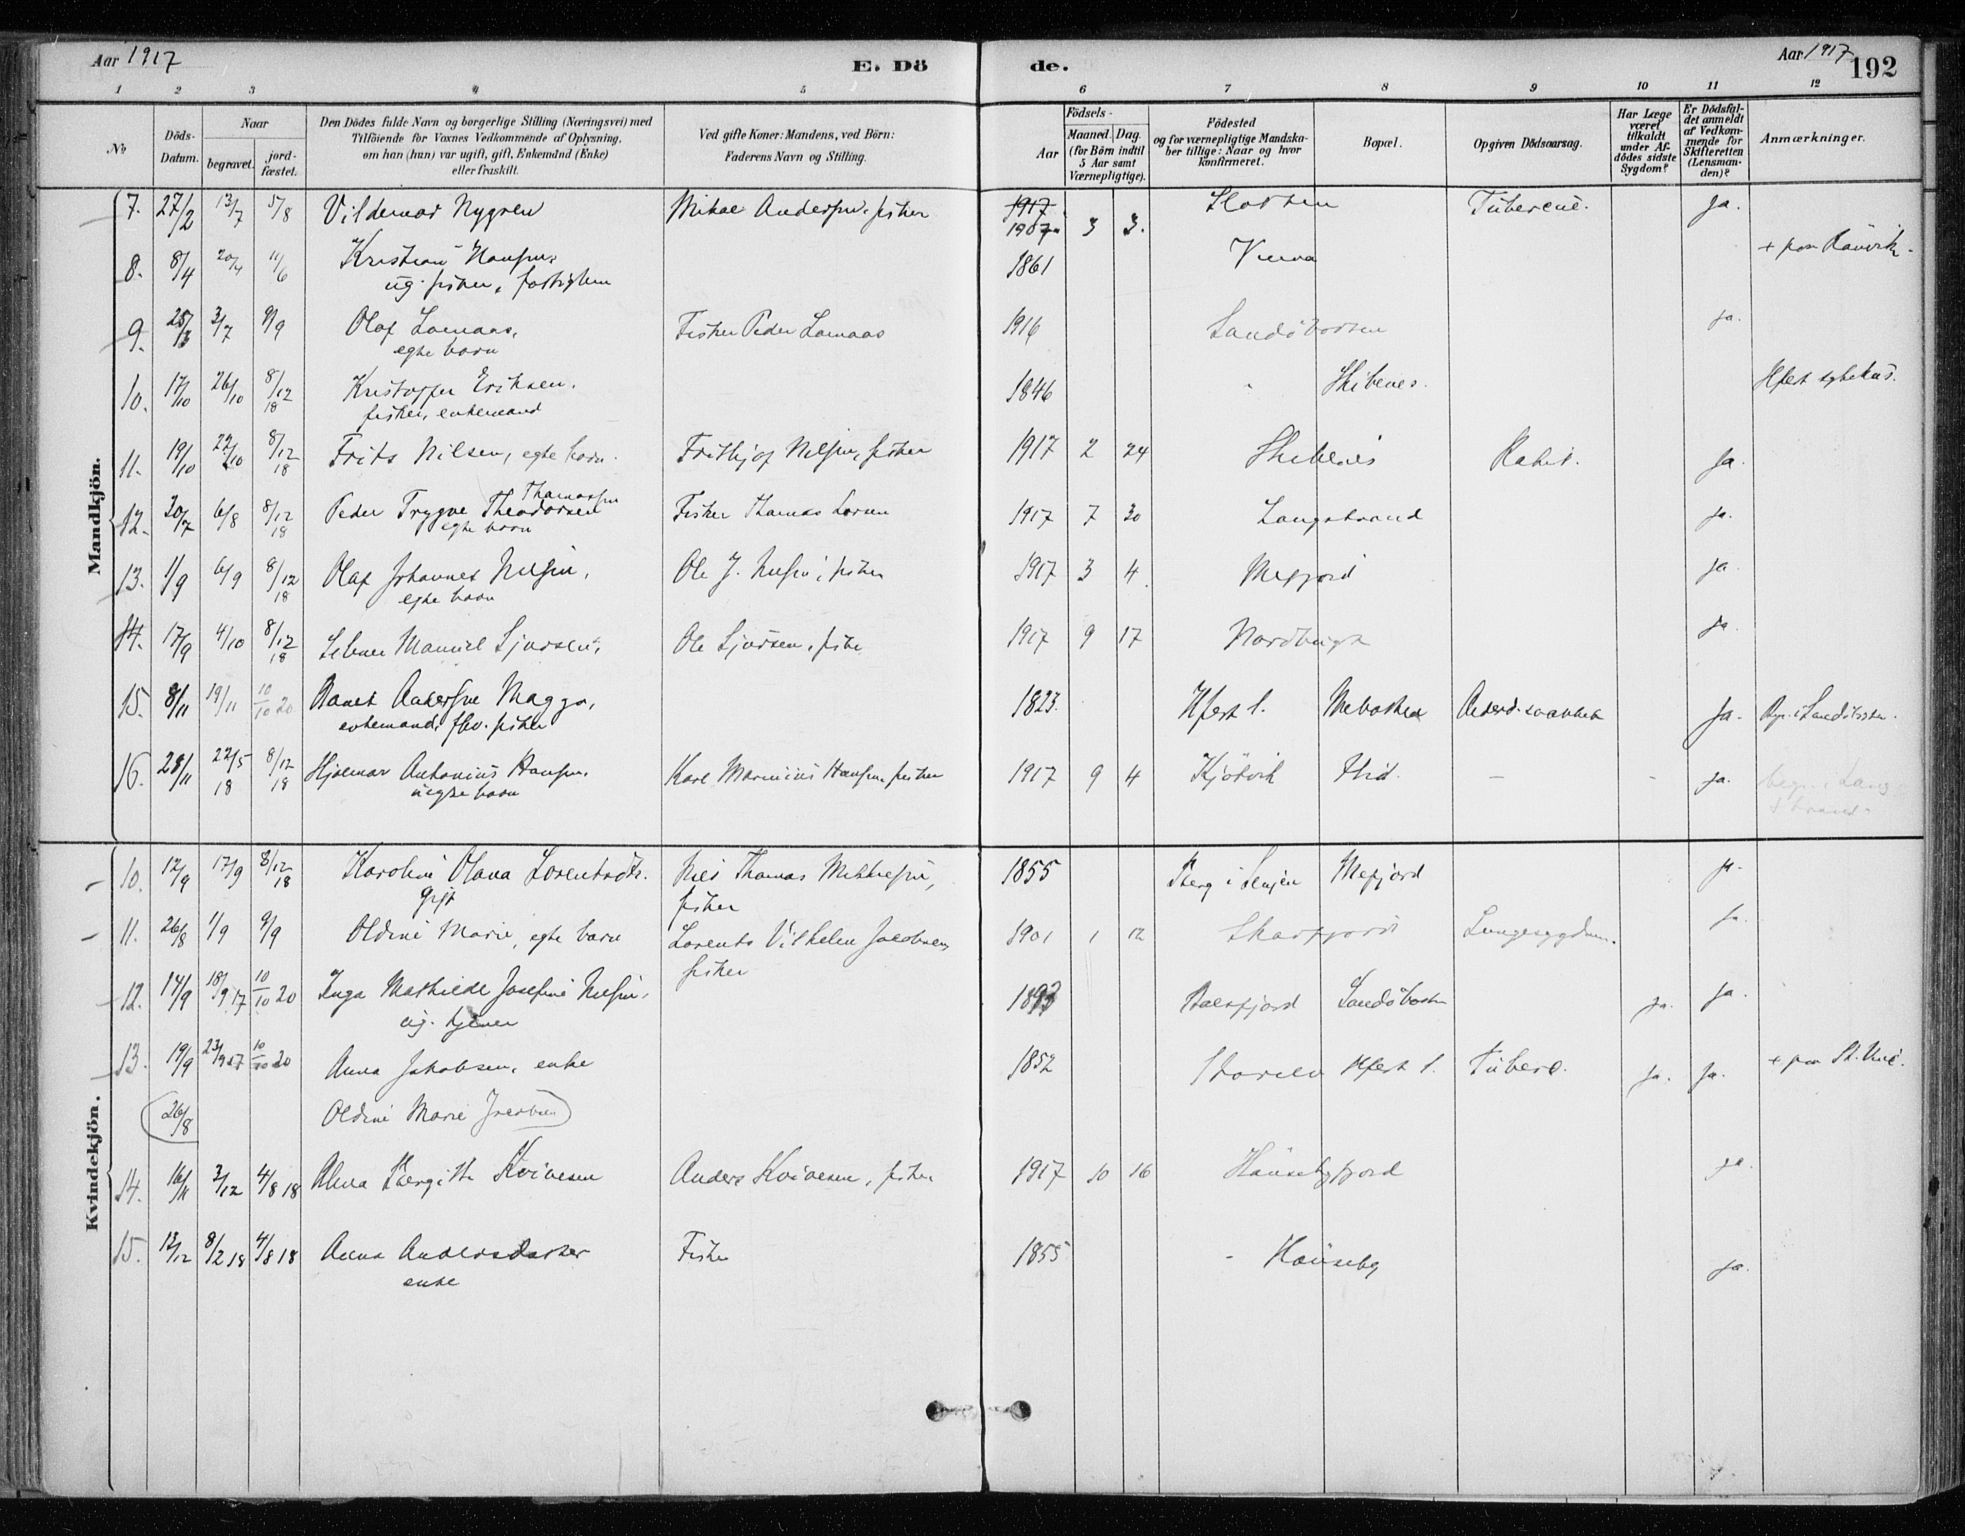 Aar 1917
E. Dö
de.
Aar 1917
192
1 2 3 4 5 6 7 8 9 10 11 12
№
Döds-Datum.
Naar
begravet.
jord-fæstet.
Den Dödes fulde Navn og borgerlige Stilling (Næringsvei) med
Tilföiende for Voxnes Vedkommende af Oplysning,
om han (hun) var ugift, gift, Enkemand (Enke)
eller fraskilt.
Ved gifte Koner: Mandens, ved Börn:
Faderens Navn og Stilling.
Födsels-
Aar
Maaned. Dag.
(for Börn indtil
5 Aar samt
Værnepligtige).
Födested
og for værnepligtige Mandska-
ber tillige: Naar og hvor
konfirmeret.
Bopæl.
Opgiven Dödsaarsag.
Har Læge
været
tilkaldt
under Af-
dödes sidste
Sygdom?
Er Dödsfal-
det anmeldt
af Vedkom-
mende for
Skifteretten
(Lensman-
den)?
Anmærkninger.
Mandkjön.
7. 27/2 13/7 5/8 Vildemar Nygren Mikal Andersen, fisker 1917 1907 3 3. Slotten Tubercul. Ja.
8. 8/4 20/4 11/6 Kristian Hansen, 1861
ug. fisker, fattiglem
9. 25/3 3/7 9/9 Olaf Lamaas, Fisker Peder Lamaas 1916 Sandöbotten ja.
egte barn
10. 17/10 26/10 8/12 18 Kristoffer Eriksen, 1846 Skibenes. Hfest sykehus.
fisker, enkemand
11. 19/10 22/10 8/12 18 Frits Nilsen, egte barn. Frithjof Nilsen, fisker 1917 2 24 Skibenes Ja.
12. 20/7 6/8 8/12 18 Peder Trygve Theodorsen Fisker Thomas 1917 7 30 Langstrand Ja.
Thomassen
egte barn
13. 1/9 6/9 8/12 18 Olaf Johannes Nilsen, Ole J. Nilsen, fisker 1917 3 4. Mefjord Ja.
egte barn
14. 17/9 4/10 8/12 18 Manuel Sjursen, Ole Sjursen, fisker 1917 9 17 Nordbugt Ja.
15. 8/11 19/11 10/10 20 Andersen Magga, 1823. Hfest l. Mebotten Alderd.svakhet Ja. Sandöbotten.
enkemand, fhv. fisker
16. 28/11 22/5 18 8/12 18 Hjalmar Antonius Hansen. Karl Marinius Hansen, fisker 1917 9 4 Kjötvik Ibid. — - ja.
uegte barn
Kvindekjön.
10. 12/9 17/9 8/12 18 Karolin Olava Lorentsdtr. Nils Thomas 1855 Berg i Senjen Mefjord ja.
Gift fisker
11. 26/8 1/9 9/9 Oldine Marie, egte barn Lorents Vilhelm Jacobsen, 1901 1 12 Skarfjord Lungesygdom. Ja.
fisker
12. 14/9 18/9 17 10/10 20 Inga Mathilde Josefine Nilsen, Balsfjord Sandöbotten ja. Ja.
ug. tjener
13. 19/9 23/9 17 10/10 20 Anna Jakobsen, enke 1852 Hfest l. Tuberc. Ja. Ja.
26/8 Oldine Marie Jacobsen
14. 16/11 3/12 4/8 18 Alma Bergitte Kvivesen Anders Kvivesen, fisker 1917 10 16 Hönsebyfjord ja.
15. 13/12 8/2 18 4/8 18 Anna Andersdatter Fisker 1855 - Hönseby ja.
enke